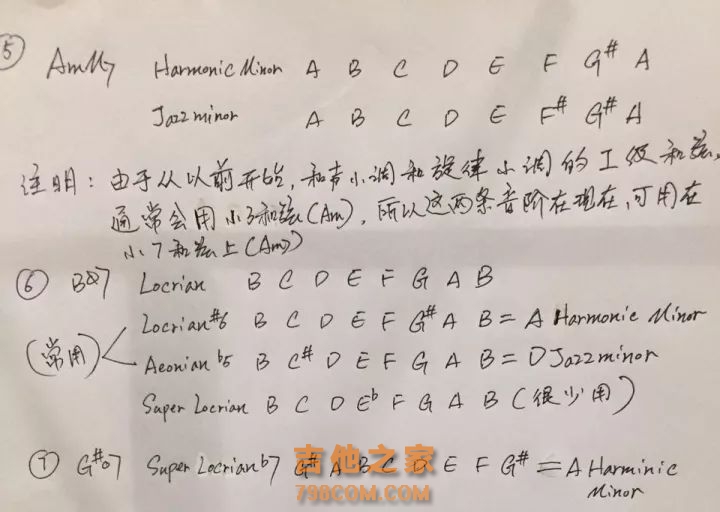 ⑤ AmM7 Harmonic Minor A B C D E F G# A
Jazz minor A B C D E F# G# A
注明：由于从以前开始，和声小调和旋律小调的I级和弦，
通常会用小3和弦(Am)，所以这两条音阶在现在，可用在
小7和弦上(Am7)
⑥ BØ7 Locrian B C D E F G A B
Locrian#6 B C D E F G# A B = A Harmonic Minor
(常用)
Aeonian b5 B C# D E F G A B = D Jazz minor
Super Locrian B C D Eb F G A B (很少用)
⑦ G#o7 Super Locrian b7 G# A B C D E F G# = A Harminic
Minor
吉他之家
798COM.COM